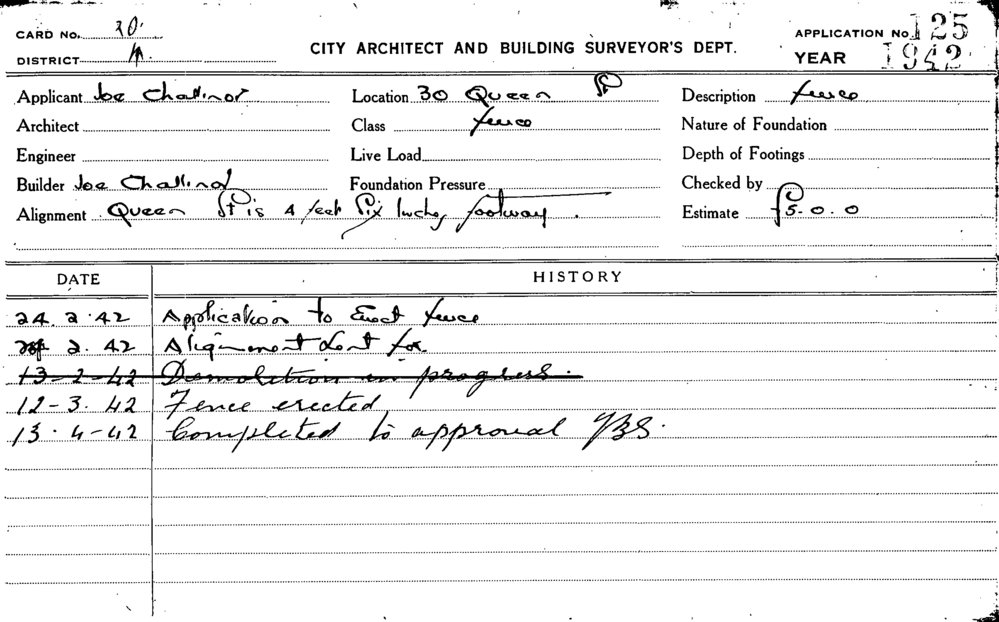 CARD No. 30. APPLICATION No. 125
DISTRICT CITY ARCHITECT AND BUILDING SURVEYOR'S DEPT. YEAR 1942
Applicant Joe Challinor Location 30 Queen St Description fence
Architect Class fence Nature of Foundation
Engineer Live Load Depth of Footings
Builder Joe Challinor Foundation Pressure Checked by
Alignment Queen St is 4 feet Six Inches footway. Estimate £5.0.0
DATE HISTORY
24. 2. 42 Application to Erect fence
2. 42 Alignment Sent for
13-2-42 Demolition in progress.
12-3. 42 Fence erected
13. 4-42 Completed to approval